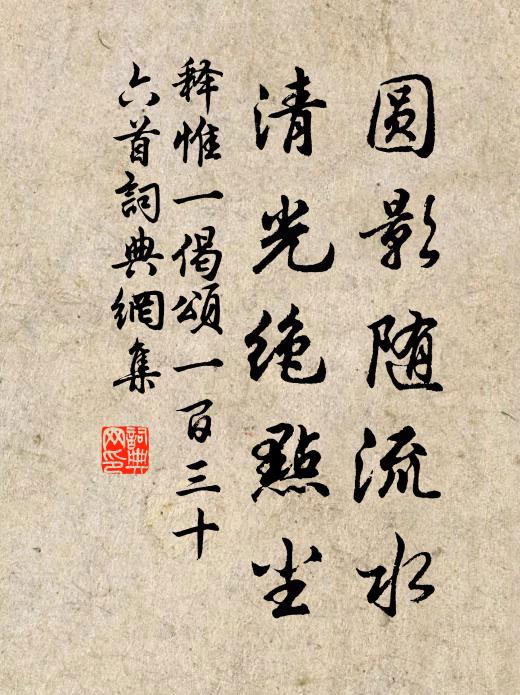 圆影随流水
清光绝點尘
释惟一偈頌一百三十
六首詞典網集
詞典
网印